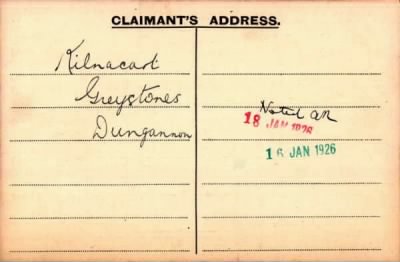 CLAIMANT'S ADDRESS.
Kilnacart
Greystones
Dungannon
Noted
18 JAN 1926
16 JAN 1926